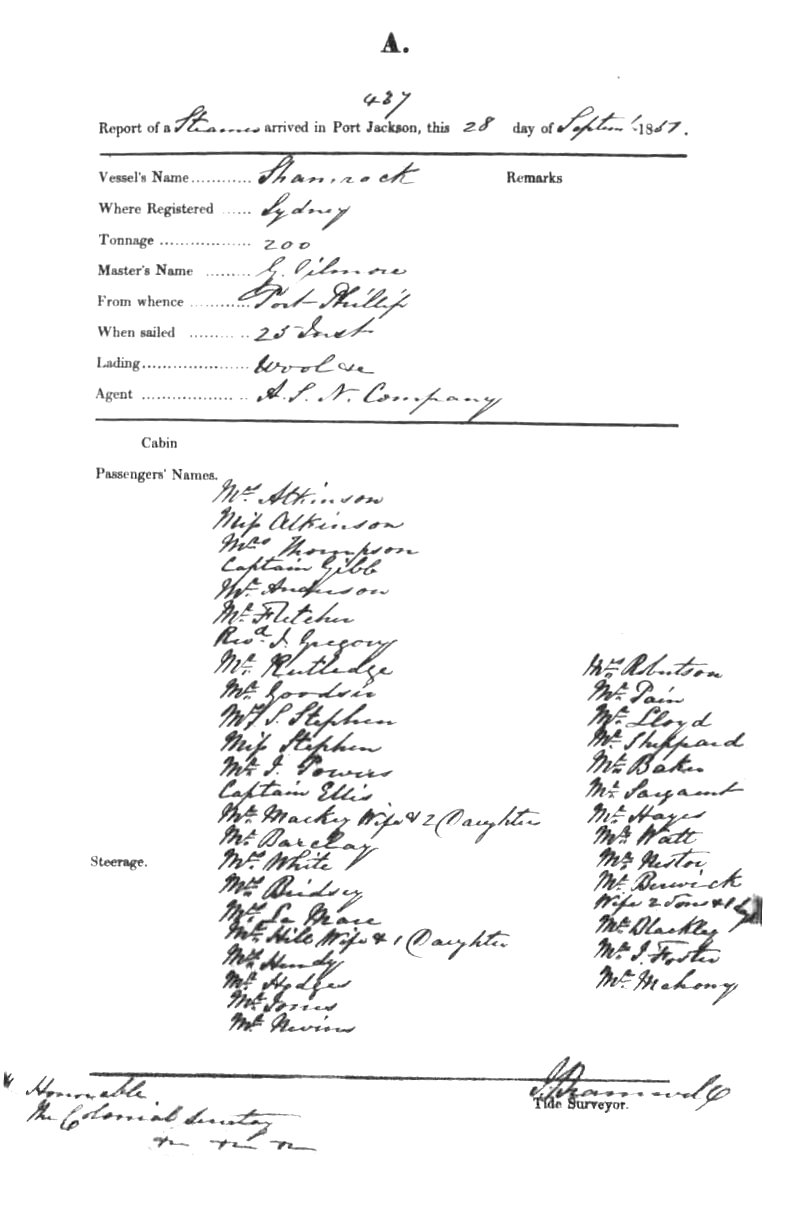 A.
437
Report of a Steamer arrived in Port Jackson, this 28 day of Septem 1851.
Vessel's Name ............ Shamrock Remarks
Where Registered ...... Sydney
Tonnage .................. 200
Master's Name ......... G. Gilmore
From whence ............ Port Phillip
When sailed ............ 25 Inst
Lading ..................... Wool &c
Agent ..................... A. S. N. Company
Cabin
Passengers' Names.
Mr. Atkinson
Miss Atkinson
Mrs Thompson
Captain Gibb
Mr. Anderson
Mr. Fletcher
Revd. J. Gregory
Mr. Rutledge
Mr. Goodsir
Mrs S. Stephen
Miss Stephen
Mr. J. Powers
Captain Ellis
Mr. Mackey Wife & 2 Daughters
Mr. Barclay
Steerage.
Mrs. White
Mrs. Birdsey
Mrs. Le Mare
Mr. Hill Wife & 1 Daughter
Mr. Hendy
Mr. Hodges
Mr. Jones
Mr. Nevins
Mrs. Robertson
Mr. Pain
Mr. Lloyd
Mr. Sheppard
Mr. Baker
Mr. Sargaunt
Mr. Hayes
Mr. Watt
Mr. Nestor
Mr. Berwick
Wife 2 Sons & 1
Mr. Blackley
Mr. J. Foster
Mr. Mahony
Honorable
The Colonial Secretary
Tide Surveyor.